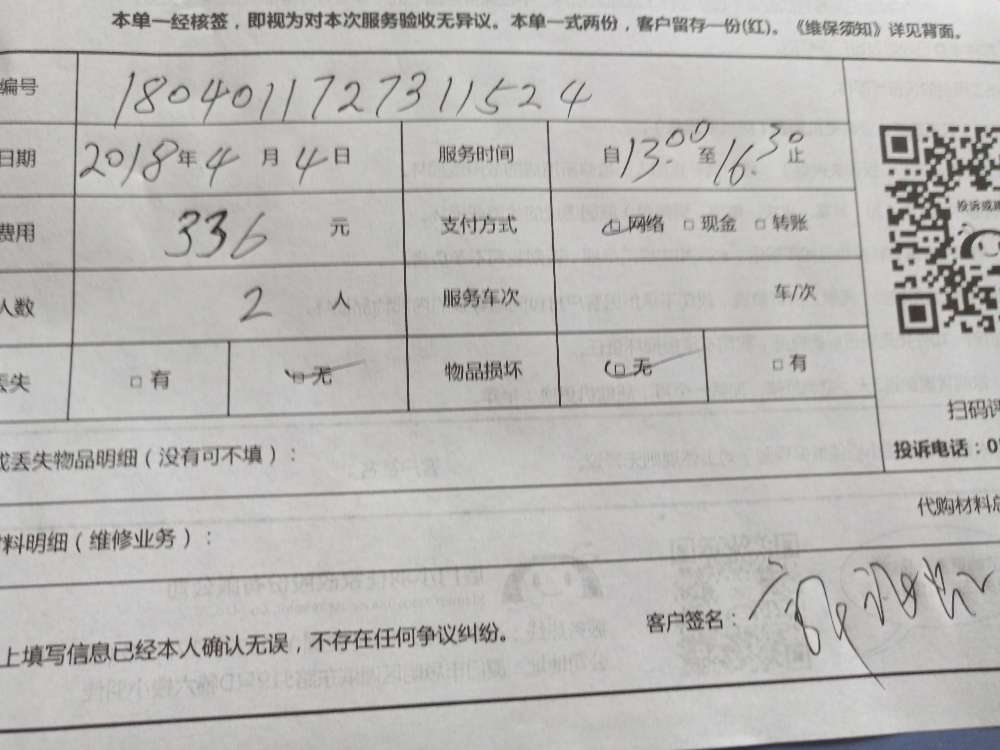 本单一经核签，即视为对本次服务验收无异议。本单一式两份，客户留存一份(红)。《维保须知》详见背面。
编号 1804011727311524
日期 2018年4月4日 服务时间 自13:00至16:30止
费用 336 元 支付方式 □网络 □现金 □转账
人数 2 人 服务车次 车/次
丢失 □有 □无 物品损坏 □无 □有
投诉或
扫码评
投诉电话：0
或丢失物品明细（没有可不填）：
代购材料总
材料明细（维修业务）：
客户签名：
上填写信息已经本人确认无误，不存在任何争议纠纷。